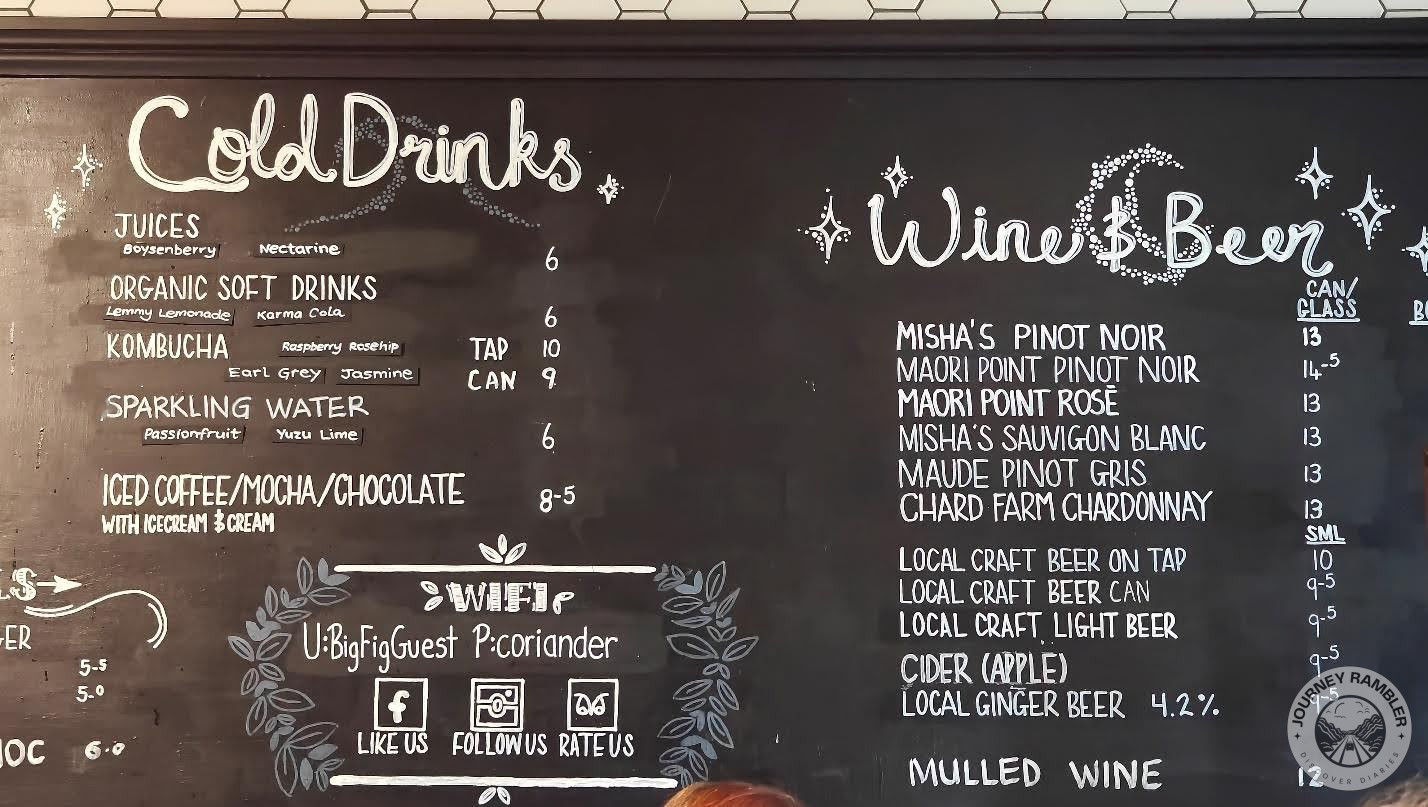 Cold Drinks
JUICES
Boysenberry Nectarine
6
ORGANIC SOFT DRINKS
Lemmy Lemonade Karma Cola
6
KOMBUCHA Raspberry Rosehip TAP 10
Earl Grey Jasmine CAN 9
SPARKLING WATER
Passionfruit Yuzu Lime
6
ICED COFFEE/MOCHA/CHOCOLATE 8-5
WITH ICECREAM & CREAM
5-5
5-0
6.0
WIFI
U:BigFigGuest P:coriander
LIKE US FOLLOW US RATE US
Wine & Beer
CAN/
GLASS
MISHA'S PINOT NOIR 13
MAORI POINT PINOT NOIR 14-5
MAORI POINT ROSĒ 13
MISHA'S SAUVIGON BLANC 13
MAUDE PINOT GRIS 13
CHARD FARM CHARDONNAY 13
SML
LOCAL CRAFT BEER ON TAP 10
LOCAL CRAFT BEER CAN 9-5
LOCAL CRAFT LIGHT BEER 9-5
CIDER (APPLE) 9-5
LOCAL GINGER BEER 4.2% 9-5
MULLED WINE 12
JOURNEY RAMBLER
DISCOVER DIARIES